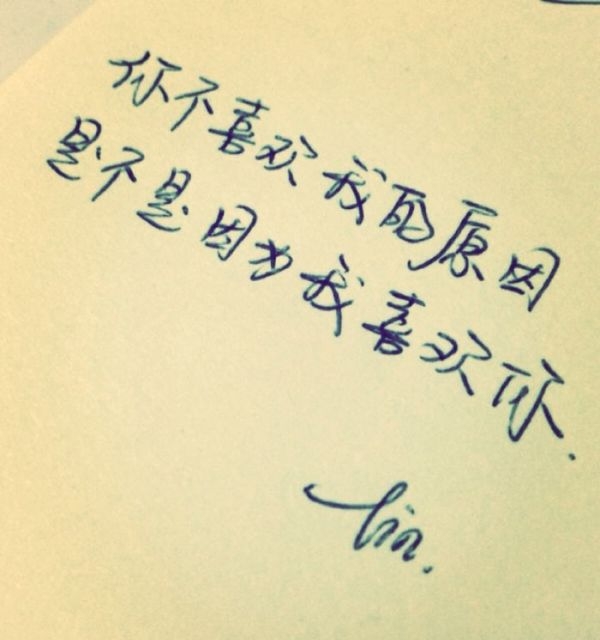 你不喜欢我的原因
是不是因为我喜欢你.
lin.